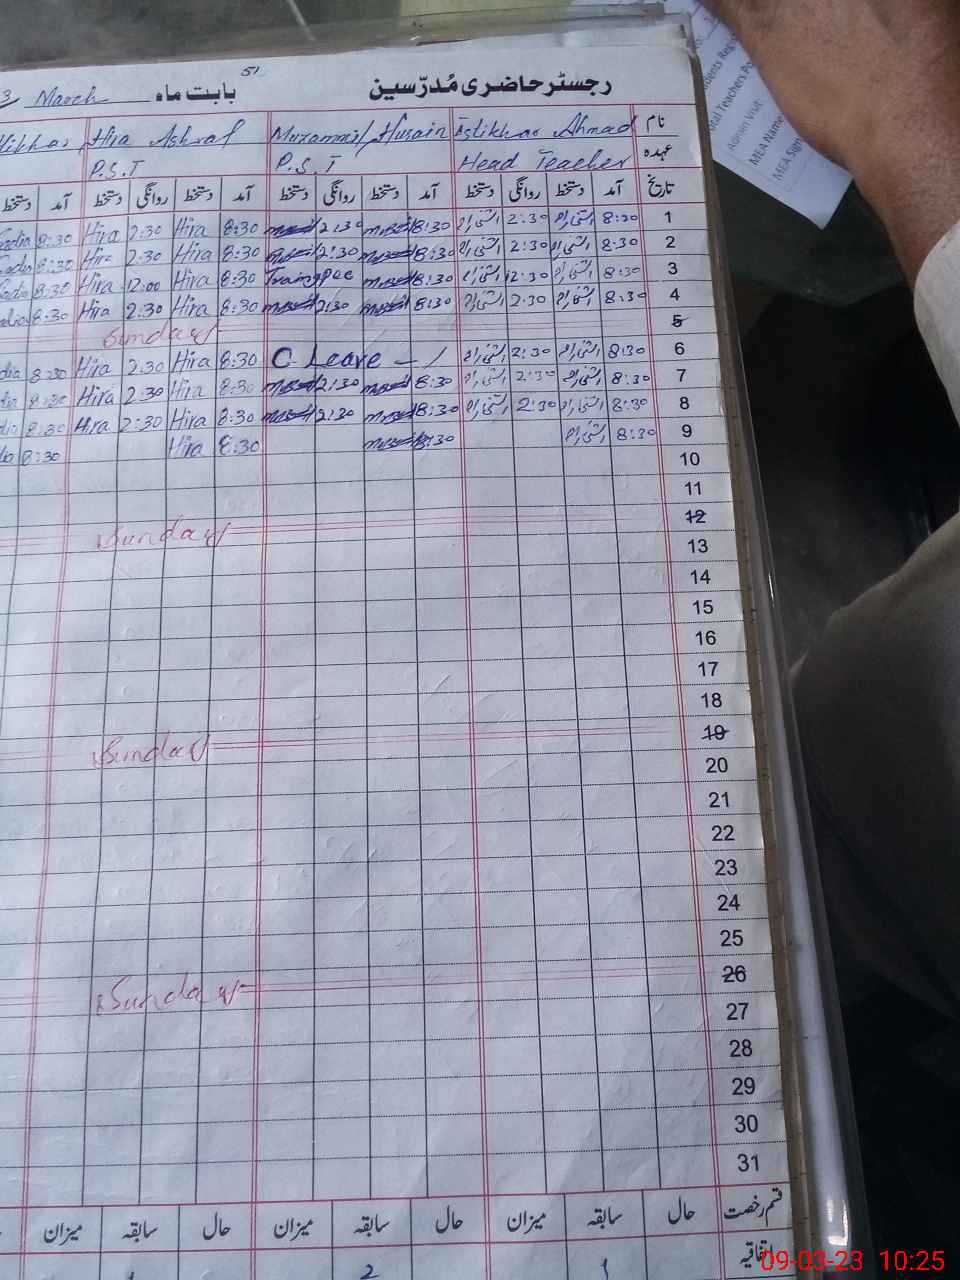 51
رجسٹر حاضری مُدرّسین بابت ماہ March
نام Iftikhar Ahmad Muzammil Husain Hira Ashraf
عہدہ Head Teacher P.S.T P.S.T
تاریخ آمد دستخط روانگی دستخط آمد دستخط روانگی دستخط آمد دستخط روانگی دستخط آمد دستخط
1 8:30 2:30 8:30 2:30 8:30 Hira 2:30 Hira 8:30
2 8:30 2:30 8:30 2:30 8:30 Hira 2:30 Hira 8:30
3 8:30 12:30 8:30 Training 8:30 Hira 12:00 Hira 8:30
4 8:30 2:30 8:30 2:30 8:30 Hira 2:30 Hira 8:30
5 Sunday
6 8:30 2:30 C. Leave - 1 8:30 Hira 2:30 Hira 8:30
7 8:30 2:30 8:30 2:30 8:30 Hira 2:30 Hira 8:30
8 8:30 2:30 8:30 2:30 8:30 Hira 2:30 Hira 8:30
9 8:30 8:30 8:30 Hira 8:30
10
11
12 Sunday
13
14
15
16
17
18
19 Sunday
20
21
22
23
24
25
26 Sunday
27
28
29
30
31
قسم رخصت حال سابقہ میزان حال سابقہ میزان حال سابقہ میزان
اتفاقیہ 1 2 1
Teachers
MEA Name
MEA Sign
09-03-23 10:25